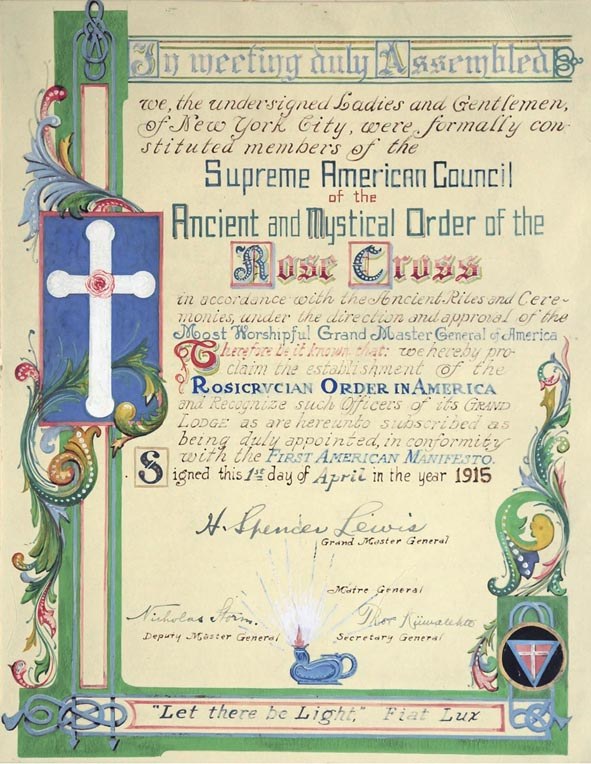 In meeting duly Assembled
we, the undersigned Ladies and Gentlemen,
of New York City, were formally con-
stituted members of the
Supreme American Council
of the
Ancient and Mystical Order of the
Rose Cross
in accordance with the Ancient Rites and Cere-
monies, under the direction and approval of the
Most Worshipful Grand Master General of America
Therefore be it known that: we hereby pro-
claim the establishment of the
ROSICRVCIAN ORDER IN AMERICA
and Recognize such Officers of its GRAND
LODGE as are hereunto subscribed as
being duly appointed, in conformity
with the FIRST AMERICAN MANIFESTO.
Signed this 1st day of April in the year 1915
H. Spencer Lewis
Grand Master General
Matre General
Nicholas Storm.
Thor Kiimalehto
Deputy Master General
Secretary General
"Let there be Light," Fiat Lux